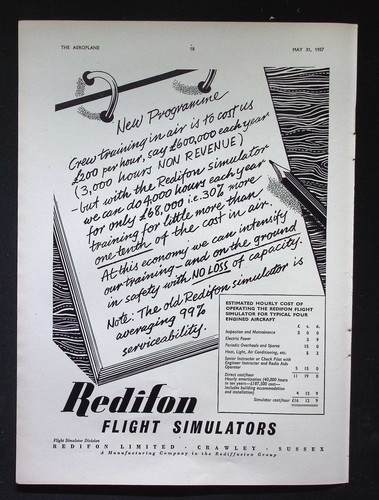 THE AEROPLANE 18 MAY 31, 1957
New Programme
Crew training in air is to cost us
£200 per hour, say £600,000 each year
(3,000 hours NON REVENUE)
- but with the Redifon simulator
we can do 4,000 hours each year
for only £68,000 i.e. 30% more
training for little more than
one tenth of the cost in air.
At this economy we can intensify
our training - and on the ground
in safety with NO LOSS of capacity.
Note: The old Redifon simulator is
averaging 99%
serviceability.
ESTIMATED HOURLY COST OF
OPERATING THE REDIFON FLIGHT
SIMULATOR FOR TYPICAL FOUR
ENGINED AIRCRAFT
£ s. d.
Inspection and Maintenance
Electric Power
Periodic Overhauls and Spares
Heat, Light, Air Conditioning, etc.
Senior Instructor or Check Pilot with
Engineer Instructor and Radio Aids
Operator 5 15 0
Direct cost/hour 11 19 0
Hourly amortization (40,000 hours
in ten years—£187,500 cost—
includes building accommodation
and installation) 4 13 9
Simulator cost/hour £16 12 9
Redifon
FLIGHT SIMULATORS
Flight Simulator Division
REDIFON LIMITED · CRAWLEY · SUSSEX
A Manufacturing Company in the Rediffusion Group